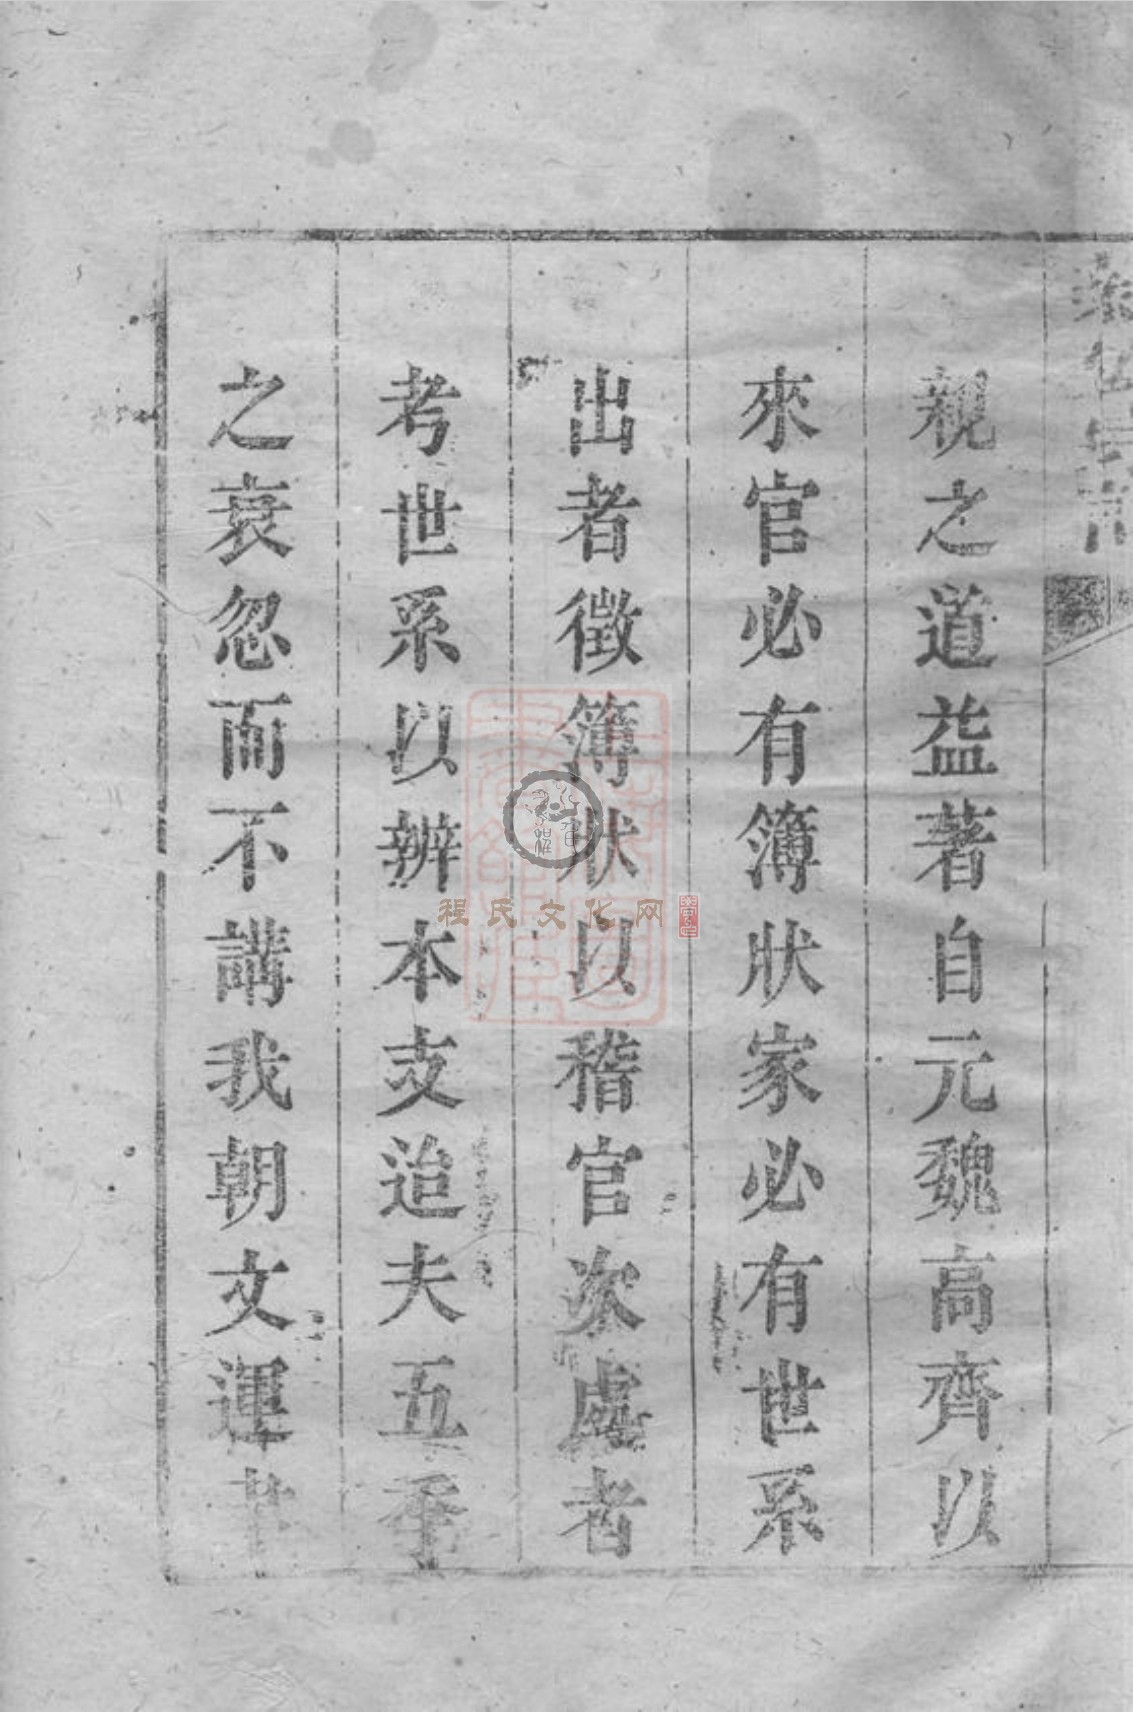 親之道益著自元魏高齊以
來官必有簿狀家必有世系
出者徵簿狀以稽官次處者
考世系以辨本支迨夫五季
之衰忽而不講我朝文運
程氏文化网